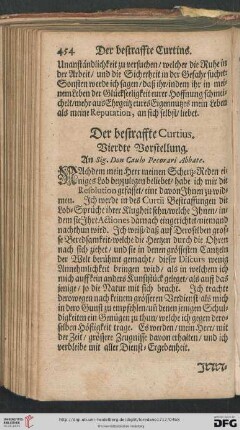 454 Der bestraffte Curtius.
Unanständlichkeit zu versuchen / welcher die Ruhe in
der Arbeit / und die Sicherheit in der Gefahr suchet.
Sonsten werde ich sagen / daß ihr / indem ihr in mei-
nem Leben der Glückseligkeit eurer Hoffnung schmei-
chelt / mehr aus Ehrgeitz eures Eigennutzes mein Leben
als meine Reputation, an sich selbst / liebet.
Der bestraffte Curtius,
Vierdte Vorstellung.
An Sig. Don Carlo Pecorari Abbate.
NAchdem mein Herr meinen Schertz-Reden ei-
niges Lob beyzulegen beliebet / habe ich mir die
Resolution gefasset / eine davon Ihnen zu wid-
men. Ich werde in des Curtii Bestraffungen die
Lob-Sprüche ihrer Klugheit sehn / welche Ihnen / in-
dem sie Ihre Actiones darnach eingerichtet niemand
nachthun wird. Ich weiß / daß auf Deroselben gros-
se Beredsamkeit / welche die Hertzen durch die Ohren
nach sich ziehet / und sie in denen grössesten Cantzeln
der Welt berühmt gemacht / dieser Discurs wenig
Annehmlichkeit bringen wird / als in welchem ich
mich auff kein anders Kunststück geleget / als auf das
jenige / so die Natur mit sich bracht. Ich trachte
derowegen nach keinem grösseren Verdienst als mich
in dero Gunst zu empfehlen / uñ denen jenigen Schul-
digkeiten ein Genügen zu thun / welche ich gegen dero-
selben Höfligkeit trage. Es werden / mein Herr / mit
der Zeit / grössere Zeugnisse davon erhalten / und ich
verbleibe mit aller Dienst-Ergebenheit.